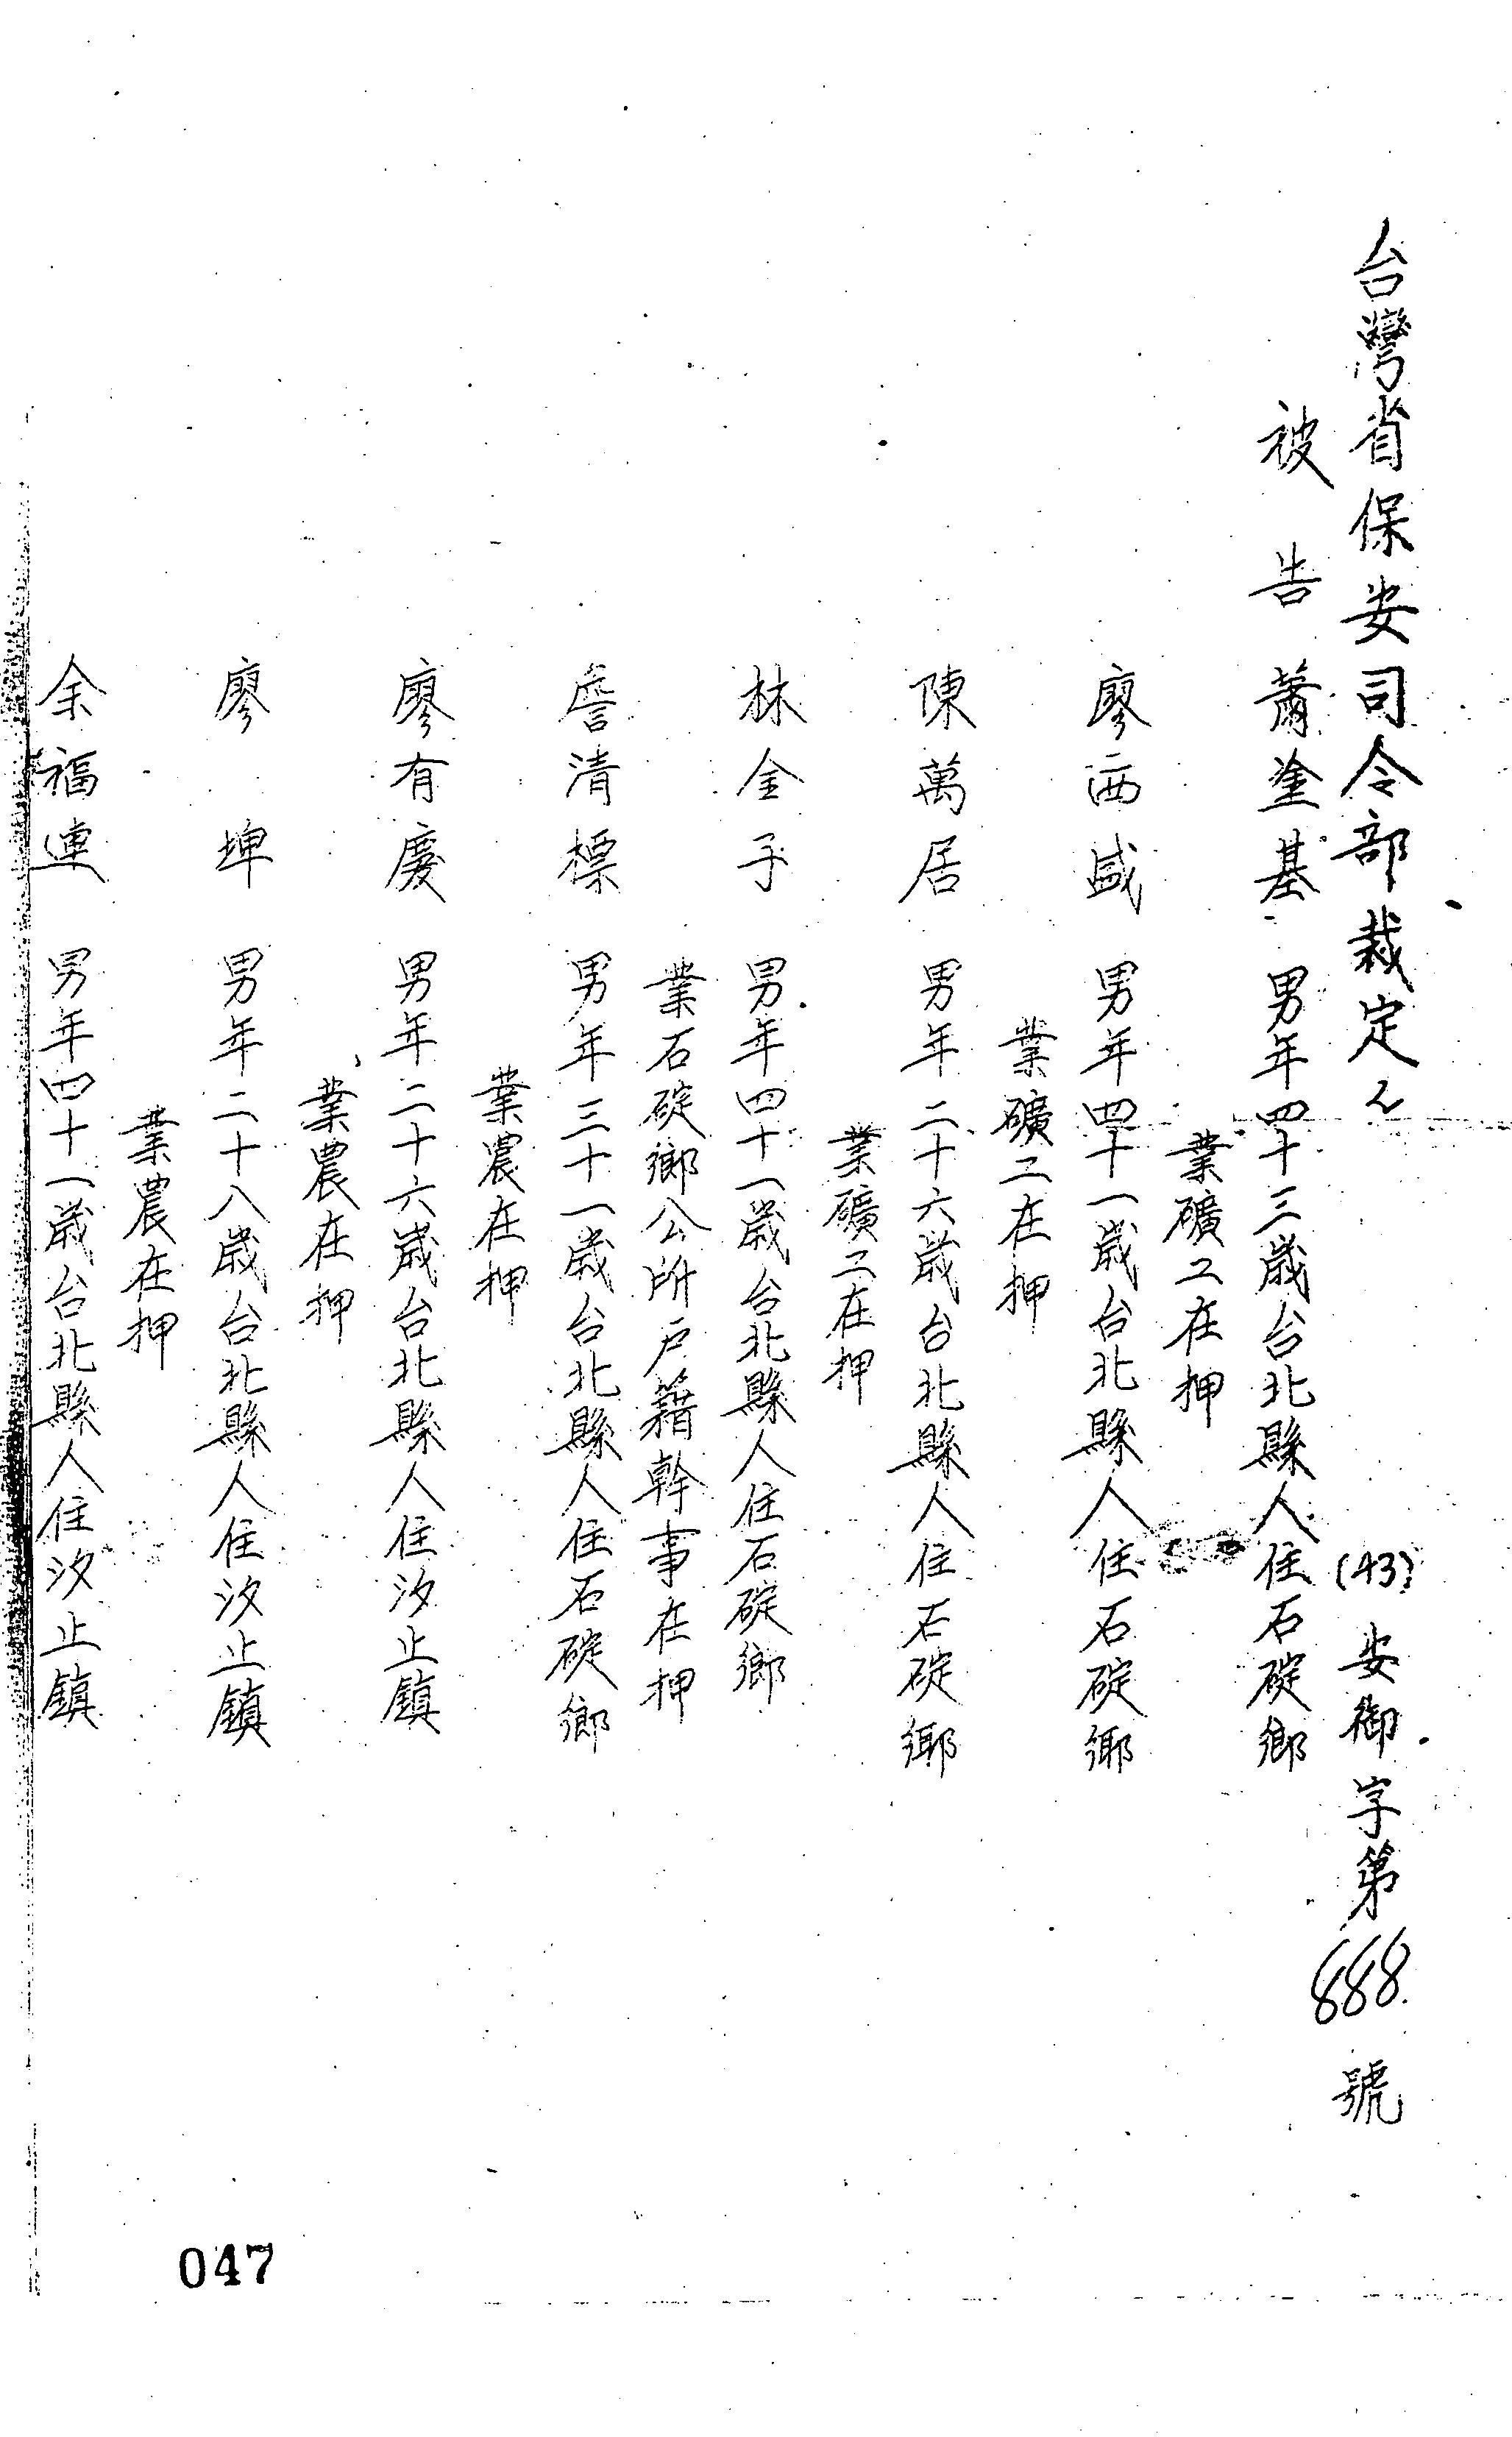 台灣省保安司令部裁定 (43)安御字第888號
被告 蕭塗基 男年四十三歲台北縣人住石碇鄉
業礦工在押
廖西盛 男年四十一歲台北縣人住石碇鄉
業礦工在押
陳萬居 男年二十六歲台北縣人住石碇鄉
業礦工在押
林金子 男年四十一歲台北縣人住石碇鄉
業石碇鄉公所戶籍幹事在押
詹清標 男年三十一歲台北縣人住石碇鄉
業農在押
廖有慶 男年二十六歲台北縣人住汐止鎮
業農在押
廖埤 男年二十八歲台北縣人住汐止鎮
業農在押
余福連 男年四十一歲台北縣人住汐止鎮
047